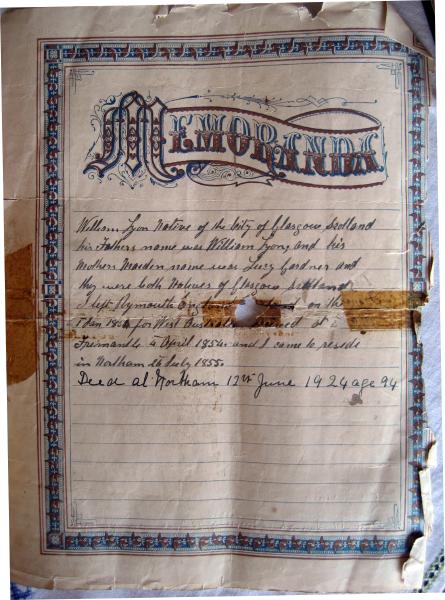 MEMORANDA
William Lyon Native of the City of Glasgow Scotland
his Fathers name was William Lyon, and his
Mothers Maiden name was Lucy Gardner and
they were both Natives of Glasgow Scotland
I left Plymouth on the
1 Jan 1854 for West Australia at
Fremantle 4 April 1854 and I came to reside
in Northam 16 July 1855.
Deed at Northam 12th June 1924 age 94